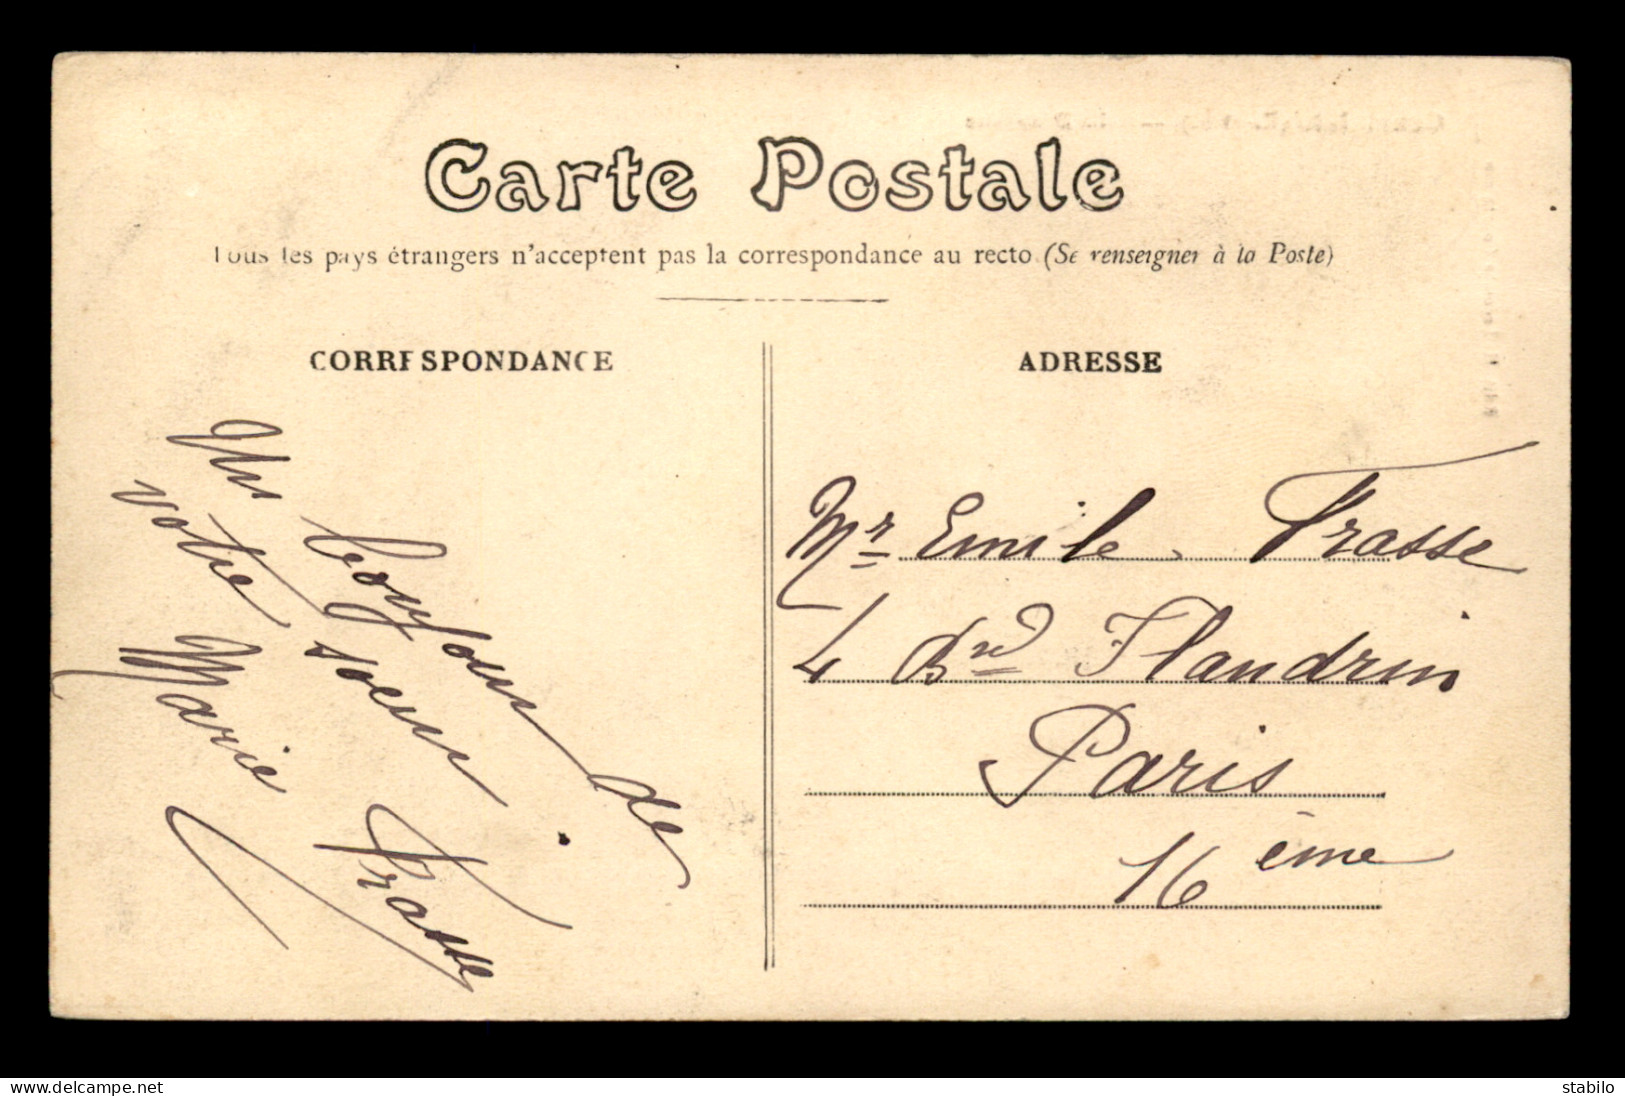 Carte Postale
Tous les pays étrangers n'acceptent pas la correspondance au recto (Se renseigner à la Poste)
CORRESPONDANCE
Un bonjour de
votre soeur
Marie Frasse
ADRESSE
Mr Emile Frasse
4 Bd Flandrin
Paris
16 ème
www.delcampe.net
stabilo